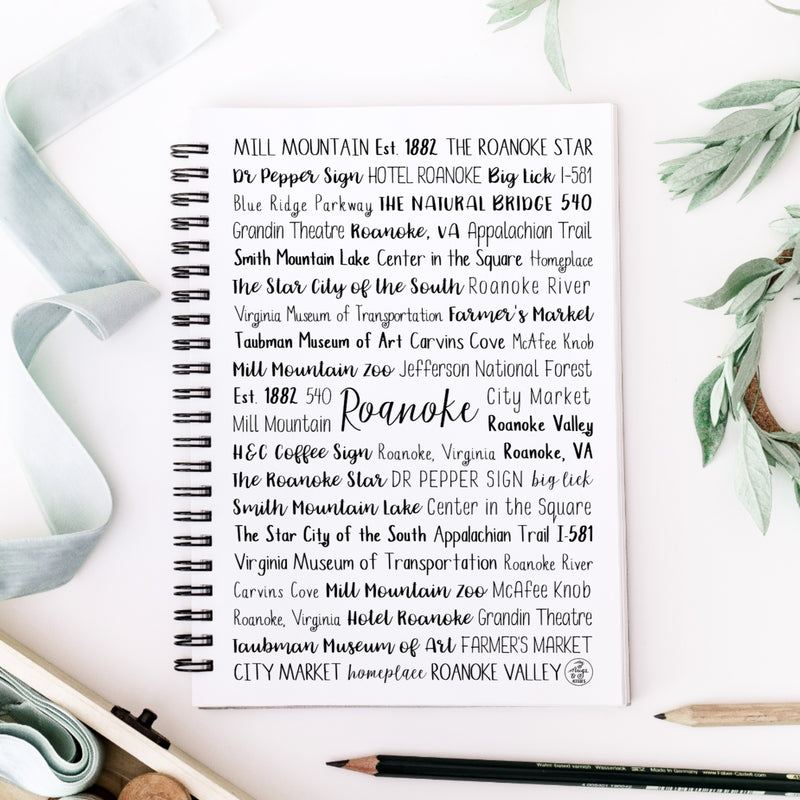 MILL MOUNTAIN Est. 1882 THE ROANOKE STAR
Dr Pepper Sign HOTEL ROANOKE Big Lick I-581
Blue Ridge Parkway THE NATURAL BRIDGE 540
Grandin Theatre Roanoke, VA Appalachian Trail
Smith Mountain Lake Center in the Square Homeplace
The Star City of the South Roanoke River
Virginia Museum of Transportation Farmer's Market
Taubman Museum of Art Carvins Cove McAfee Knob
Mill Mountain Zoo Jefferson National Forest
Est. 1882 540 City Market
Roanoke
Mill Mountain Roanoke Valley
H&C Coffee Sign Roanoke, Virginia Roanoke, VA
The Roanoke Star DR PEPPER SIGN big lick
Smith Mountain Lake Center in the Square
The Star City of the South Appalachian Trail I-581
Virginia Museum of Transportation Roanoke River
Carvins Cove Mill Mountain Zoo McAfee Knob
Roanoke, Virginia Hotel Roanoke Grandin Theatre
Taubman Museum of Art FARMER'S MARKET
CITY MARKET homeplace ROANOKE VALLEY
Made in Germany www.Faber-Castell.com